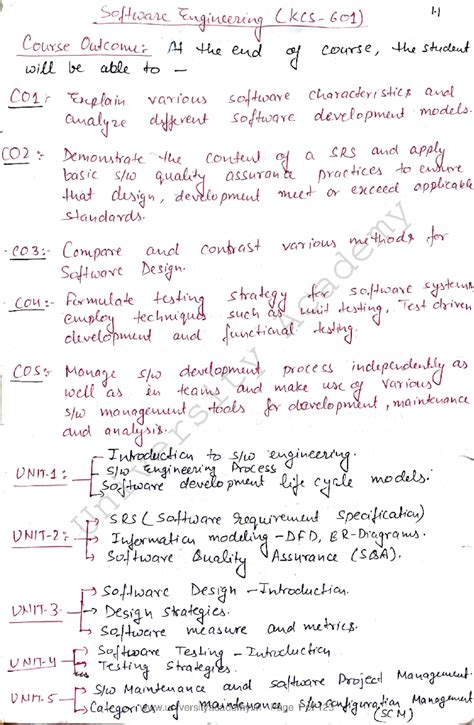 Software Engineering (KCS-601)
1-1
Course Outcome:- At the end of course, the student
will be able to -
CO1:- Explain various software characteristics and
analyze different software development models.
CO2:- Demonstrate the content of a SRS and apply
basic s/w quality assurance practices to ensure
that design, development meet or exceed applicable
standards.
CO3:- Compare and contrast various methods for
Software Design.
CO4:- Formulate testing strategy for software systems,
employ techniques such as unit testing, Test driven
development and functional testing.
CO5:- Manage s/w development process independently as
well as in teams and make use of various
s/w management tools for development, maintenance
and analysis.
UNIT-1:- Introduction to s/w engineering.
S/w Engineering Process
Software development life cycle models.
UNIT-2:- SRS (Software requirement Specification)
Information modeling - DFD, ER-Diagrams.
Software Quality Assurance (SQA).
UNIT-3 Software Design - Introduction.
Design Strategies.
Software measure and metrics.
UNIT-4 Software Testing - Introduction
Testing Strategies.
UNIT-5 S/w Maintenance and software Project Management.
Categories of maintenance s/w configuration Management
(SCM)
University Academy